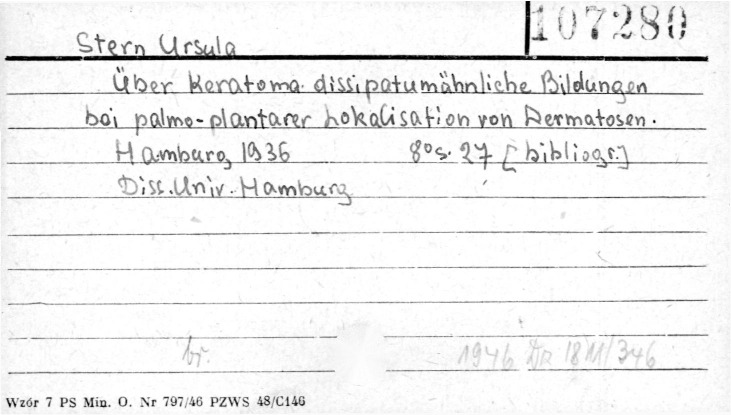 107280
Stern Ursula
Über Keratoma dissipatumähnliche Bildungen
bei palmo-plantarer Lokalisation von Dermatosen.
Hamburg, 1936 8° s. 27 [bibliogr.]
Diss. Univ. Hamburg
br.
1946 Dr 18 M/346
Wzór 7 PS Min. O. Nr 797/46 PZWS 48/C146